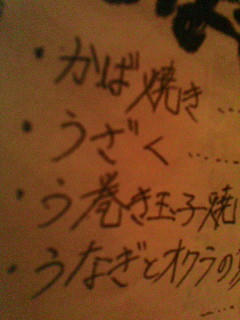 ・かば焼き ……
・うざく ……
・う巻き玉子焼
・うなぎとオクラの